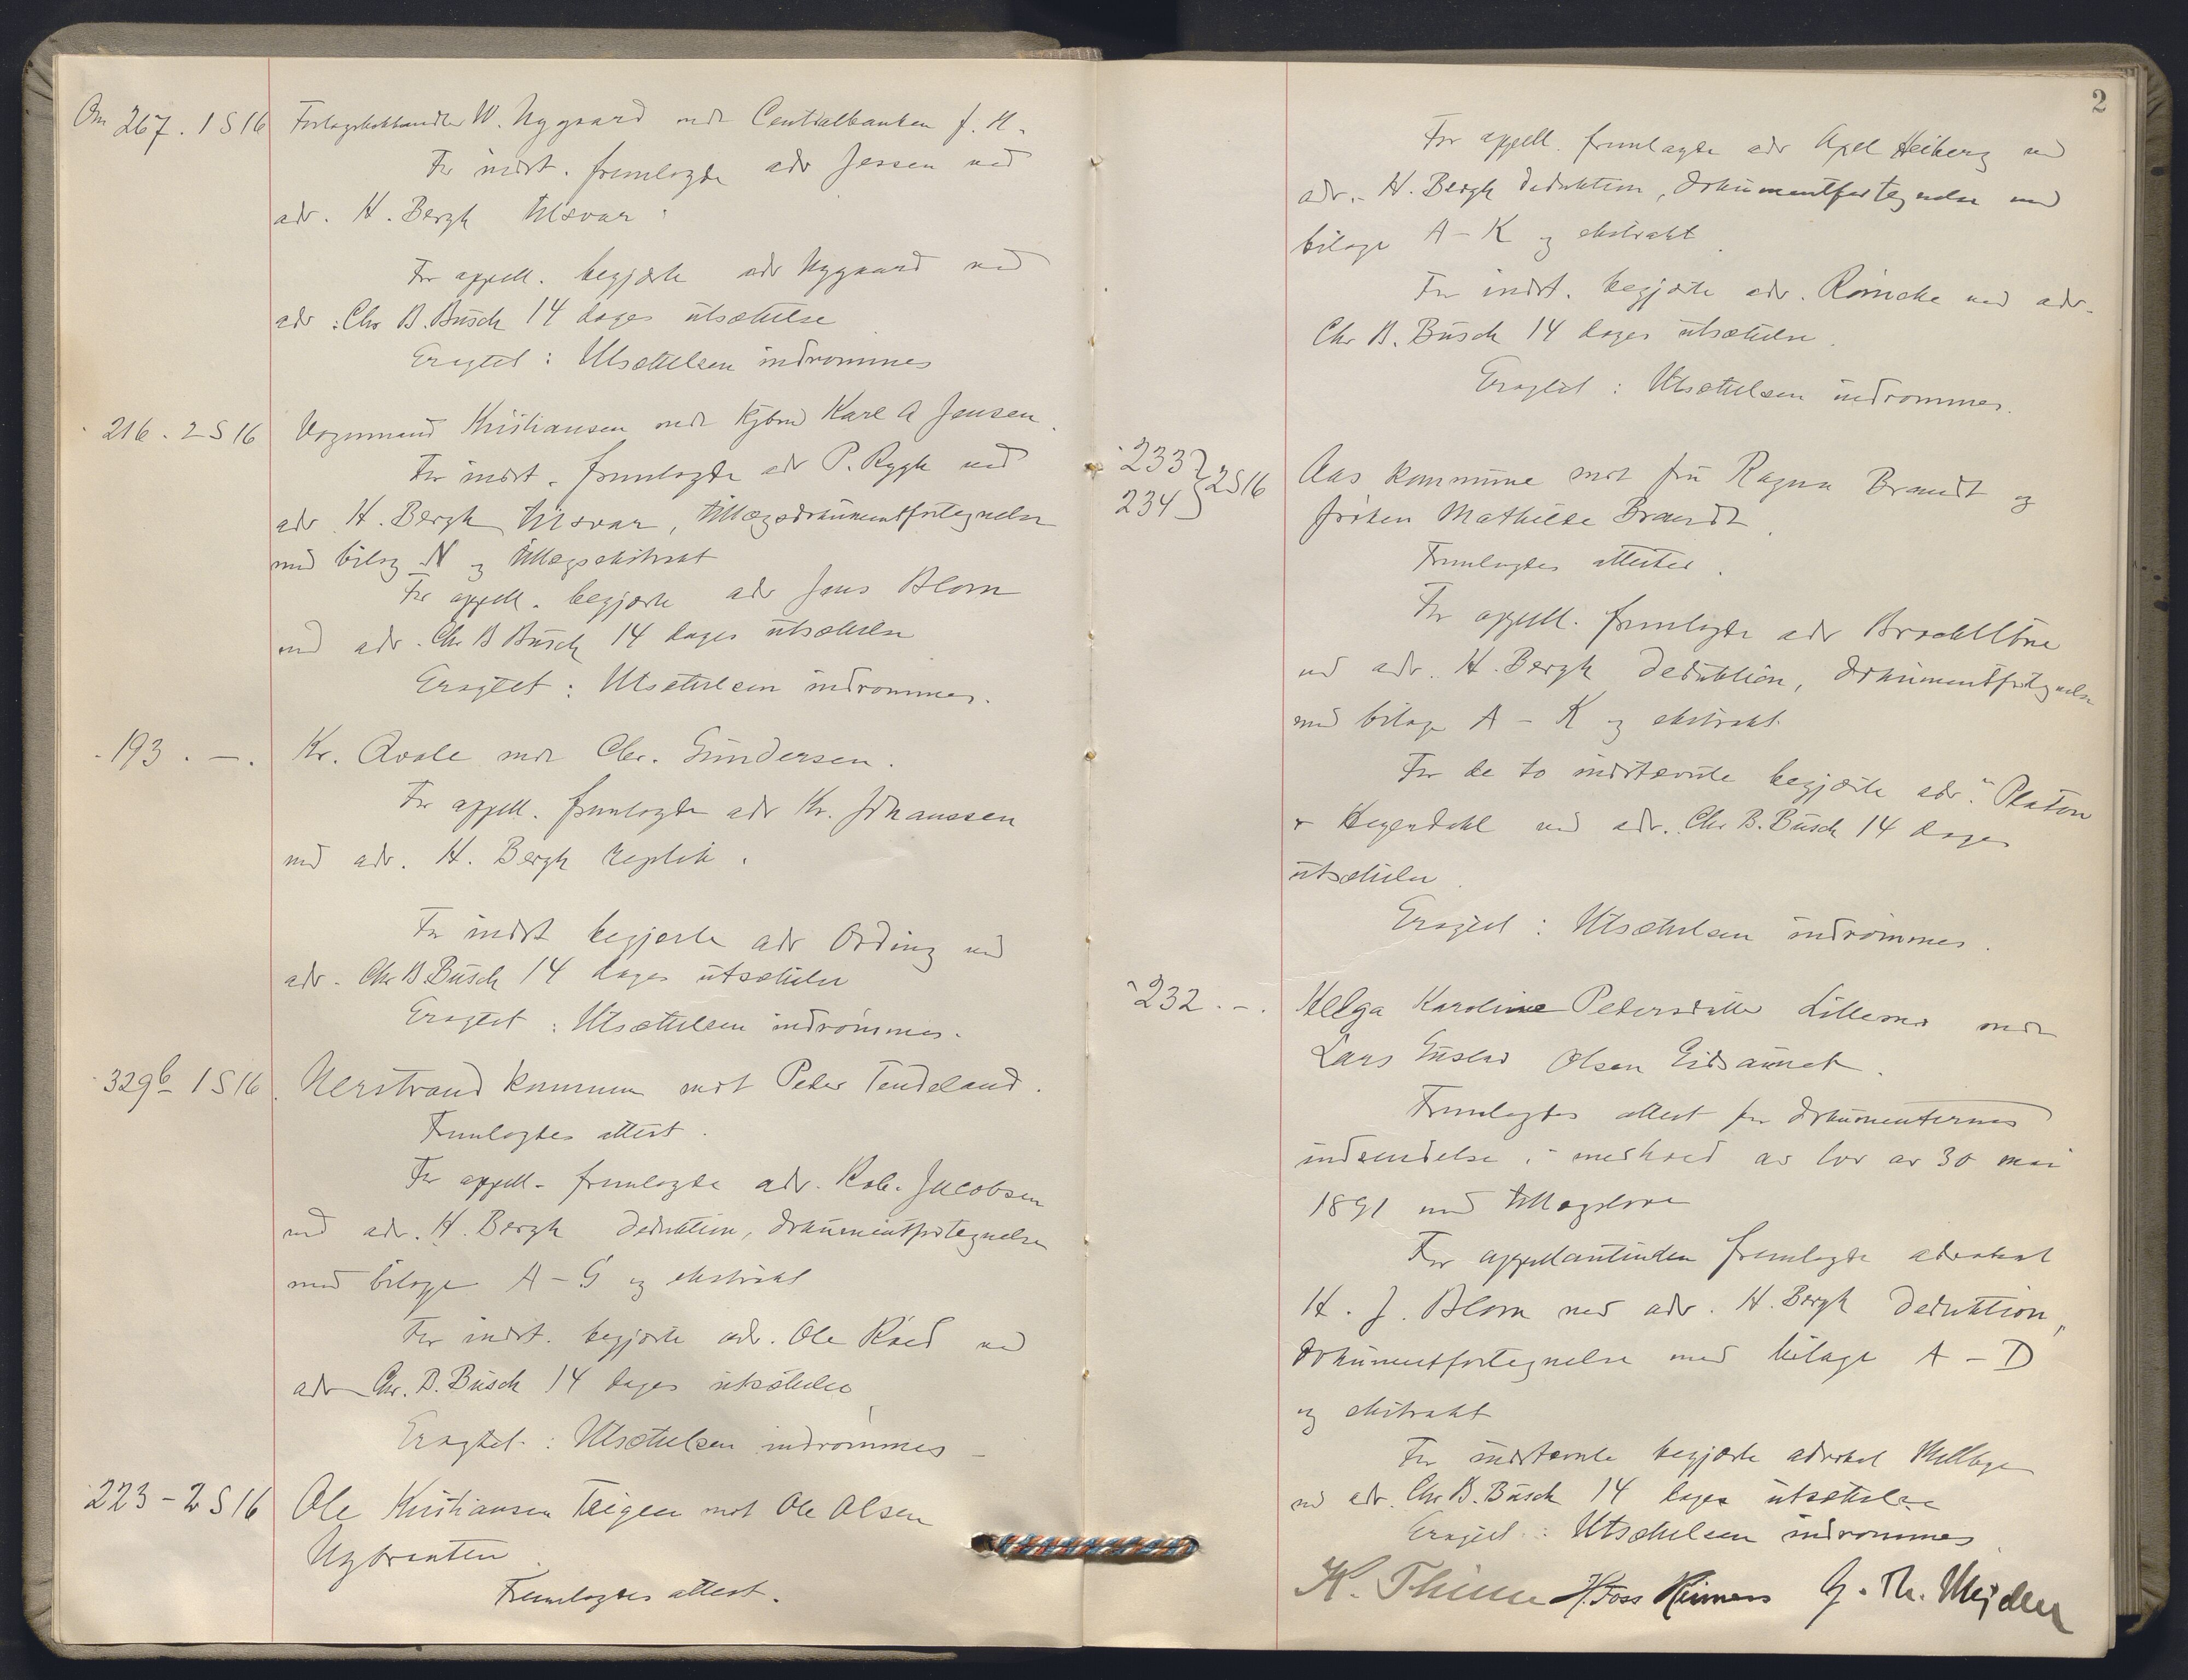 Om 267. 1 S 16 Forlagsbokhandler W. Nygaard mot Centralbanken f. N.
For indst. fremlagde adv Jessen ved
adv. H. Bergh tilsvar.
For appell. begjærte adv Nygaard ved
adv. Chr B. Busch 14 dages utsættelse
Eragtet: Utsættelsen indrømmes
216. 2 S 16 Vognmand Kristiansen mot Kjbmd Karl A Jensen.
For indst. fremlagde adv P. Rygh ved
adv H. Bergh tilsvar, tillægsdokumentfortegnelse
med bilag N og tillægsekstrakt
For appell. begjærte adv Jens Blom
ved adv. Chr B Busch 14 dages utsættelse
Eragtet: Utsættelsen indrømmes.
193. —. Kr. Avale mot Chr. Gundersen.
For appell. fremlagde adv Kr. Johanssen
ved adv. H. Bergh replik.
For indst begjærte adv Ording ved
adv. Chr B Busch 14 dages utsættelse
Eragtet: Utsættelsen indrømmes.
329b 1 S 16. Nerstrand kommune mot Peder Tendeland.
Fremlagdes attest.
For appell. fremlagde adv. Rob. Jacobsen
ved adv. H. Bergh deduktion, dokumentfortegnelse
med bilage A - G og ekstrakt
For indst. begjærte adv. Ole Røed ved
adv Chr. B. Busch 14 dages utsættelse
Eragtet: Utsættelsen indrømmes
223 - 2 S 16 Ole Kristiansen Teigen mot Ole Olsen
Nybraaten.
Fremlagdes attest.
2
For appell. fremlagde adv Axel Heiberg ved
adv. H. Bergh deduktion, dokumentfortegnelse med
bilage A - K og ekstrakt.
For indst. begjærte adv. Römcke ved adv.
Chr B. Busch 14 dages utsættelse.
Eragtet: Utsættelsen indrømmes.
233 } 2 S 16 Aas kommune mot fru Ragna Brandt og
234 } frøken Mathilde Brandt.
Fremlagdes attester.
For appell. fremlagde adv
ved adv. H. Bergh deduktion, dokumentfortegnelse
med bilage A - K og ekstrakt.
For de to indstevnte begjærte adv. Platou
& Heyerdahl ved adv. Chr B. Busch 14 dages
utsættelse.
Eragtet: Utsættelsen indrømmes.
232. —. Helga Karoline Pedersdatter Lillemo mot
Lars Gustav Olsen Eidsaunet.
Fremlagdes attest for dokumenternes
indsendelse i medhold av lov av 30 mai
1891 med tillægslove
For appellantinden fremlagde advokat
H. J. Blom ved adv. H. Bergh deduktion,
dokumentfortegnelse med bilage A - D
og ekstrakt
For indstevnte begjærte advokat Mellbye
ved adv. Chr B. Busch 14 dages utsættelse
Eragtet: Utsættelsen indrømmes.
K. Thinn H. Foss Reimers G. Th. Mejdell